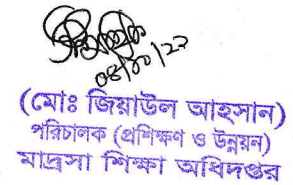 (মোঃ জিয়াউল আহসান)
পরিচালক (প্রশিক্ষণ ও উন্নয়ন)
মাদ্রাসা শিক্ষা অধিদপ্তর